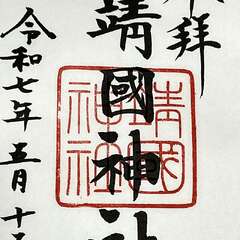 拝
靖國神社
令和七年五月十
靖國
神社